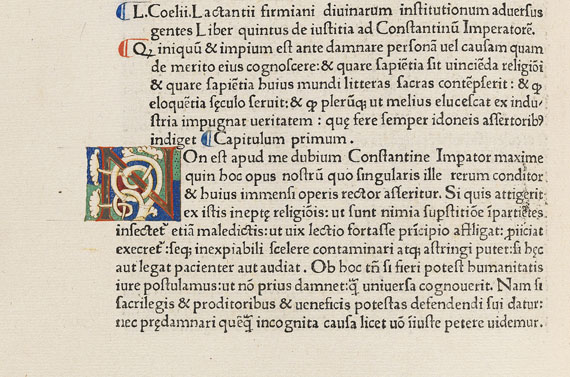 L. Coelii. Lactantii firmiani diuinarum institutionum aduersus
gentes Liber quintus de iustitia ad Constantinū Imperatorē.
Q iniquū & impium est ante damnare personā uel causam quam
de merito eius cognoscere: & quare sapiētia sit uinciēda religiōi
& quare sapiētia huius mundi litteras sacras contēpserit : & ꝙ
eloquētia sęculo seruit: & ꝙ plerūqꝫ ut melius elucescat ex indu/
stria impugnat ueritatem : quę fere semper idoneis assertoribꝰ
indiget Capitulum primum .
NOn est apud me dubium Constantine Impator maxime
quin hoc opus nostrū quo singularis ille rerum conditor
& huius immensi operis rector asseritur. Si quis attigerit
ex istis ineptę religiōis: ut sunt nimia supstitiōe īpartiētes
insectet᷑ etiā maledictis: ut uix lectio fortasse pricipio affligat: piiciat
execret᷑ : seqꝫ inexpiabili scelere contaminari atqꝫ astringi putet: si hęc
aut legat pacienter aut audiat . Ob hoc tn̄ si fieri potest humanitatis
iure postulamus: ut nō prius damnet: q̄ uniuersa cognouerit. Nam si
sacrilegis & proditoribus & ueneficis potestas defendendi sui datur:
nec prędamnari quēq̄ incognita causa licet uō iiuste petere uidemur.